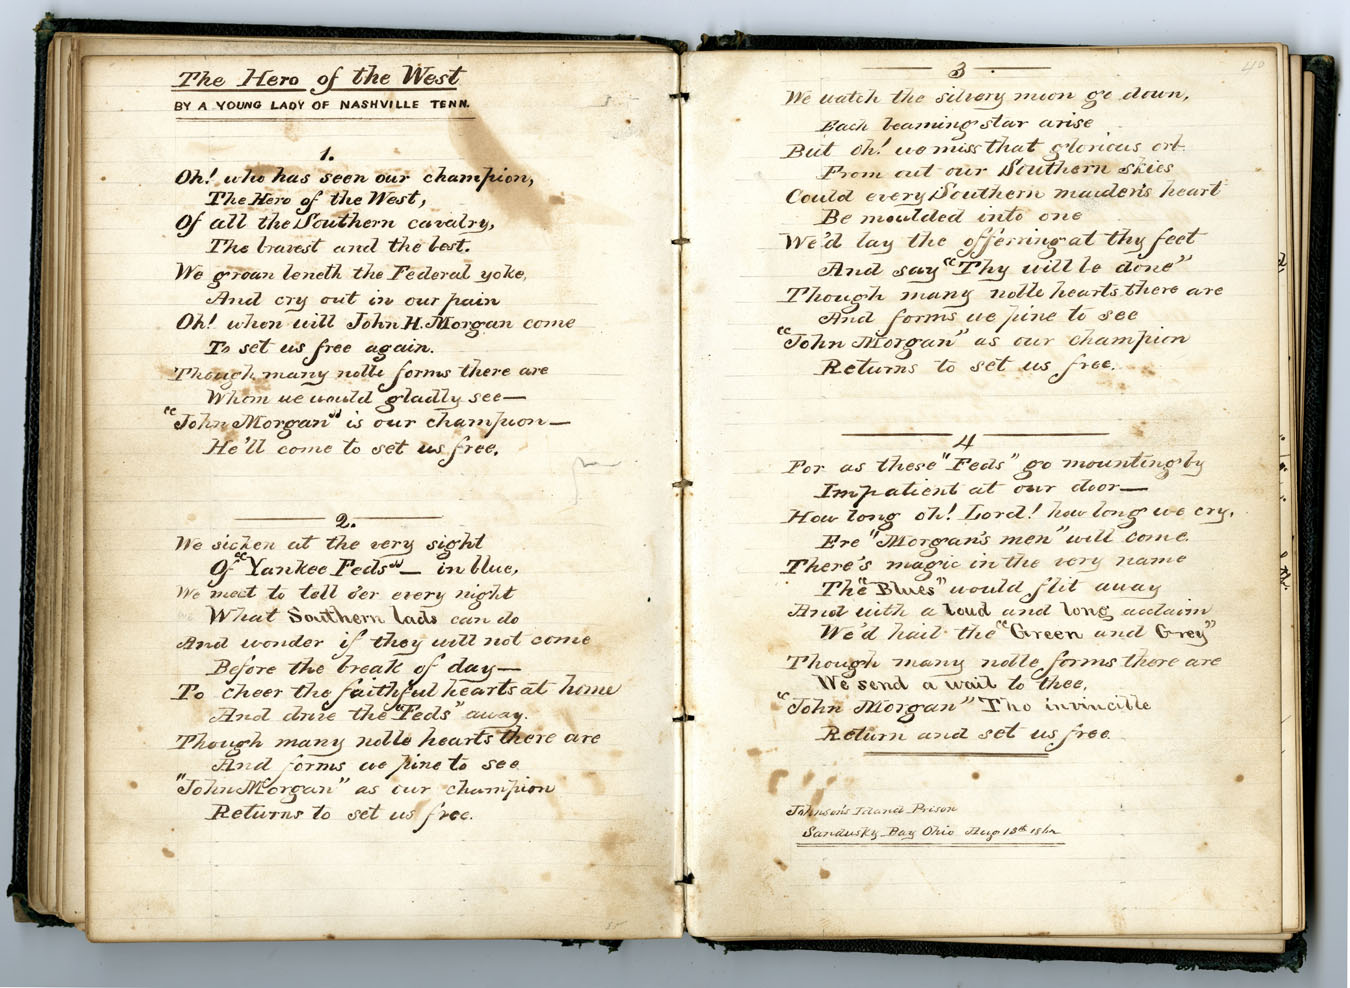 The Hero of the West
BY A YOUNG LADY OF NASHVILLE TENN.
1.
Oh! who has seen our champion,
The Hero of the West,
Of all the Southern cavalry,
The bravest and the best.
We groan beneth the Federal yoke,
And cry out in our pain
Oh! when will John H. Morgan come
To set us free again.
Though many noble forms there are
Whom we would gladly see—
"John Morgan" is our champion—
He'll come to set us free.
2.
We sicken at the very sight
Of "Yankee Feds" — in blue,
We meet to tell o'er every night
What Southern lads can do
And wonder if they will not come
Before the break of day—
To cheer the faithful hearts at home
And drive the "Feds" away.
Though many noble hearts there are
And forms we pine to see
"John Morgan" as our champion
Returns to set us free.
40
3.
We watch the silvery moon go down,
Each beaming star arise
But oh! we miss that glorious orb
From out our Southern skies
Could every Southern maiden's heart
Be moulded into one
We'd lay the offerring at thy feet
And say "Thy will be done"
Though many noble hearts there are
And forms we pine to see
"John Morgan" as our champion
Returns to set us free.
4
For as these "Feds" go mounting by
Impatient at our door—
How long oh! Lord! how long we cry,
Ere "Morgan's men" will come.
There's magic in the very name
The "Blues" would flit away
And with a loud and long acclaim
We'd hail the "Green and Grey"
Though many noble forms there are
We send a wail to thee,
"John Morgan" Tho invincible
Return and set us free
Johnson's Island Prison
Sandusky Bay Ohio Aug 13th 1862